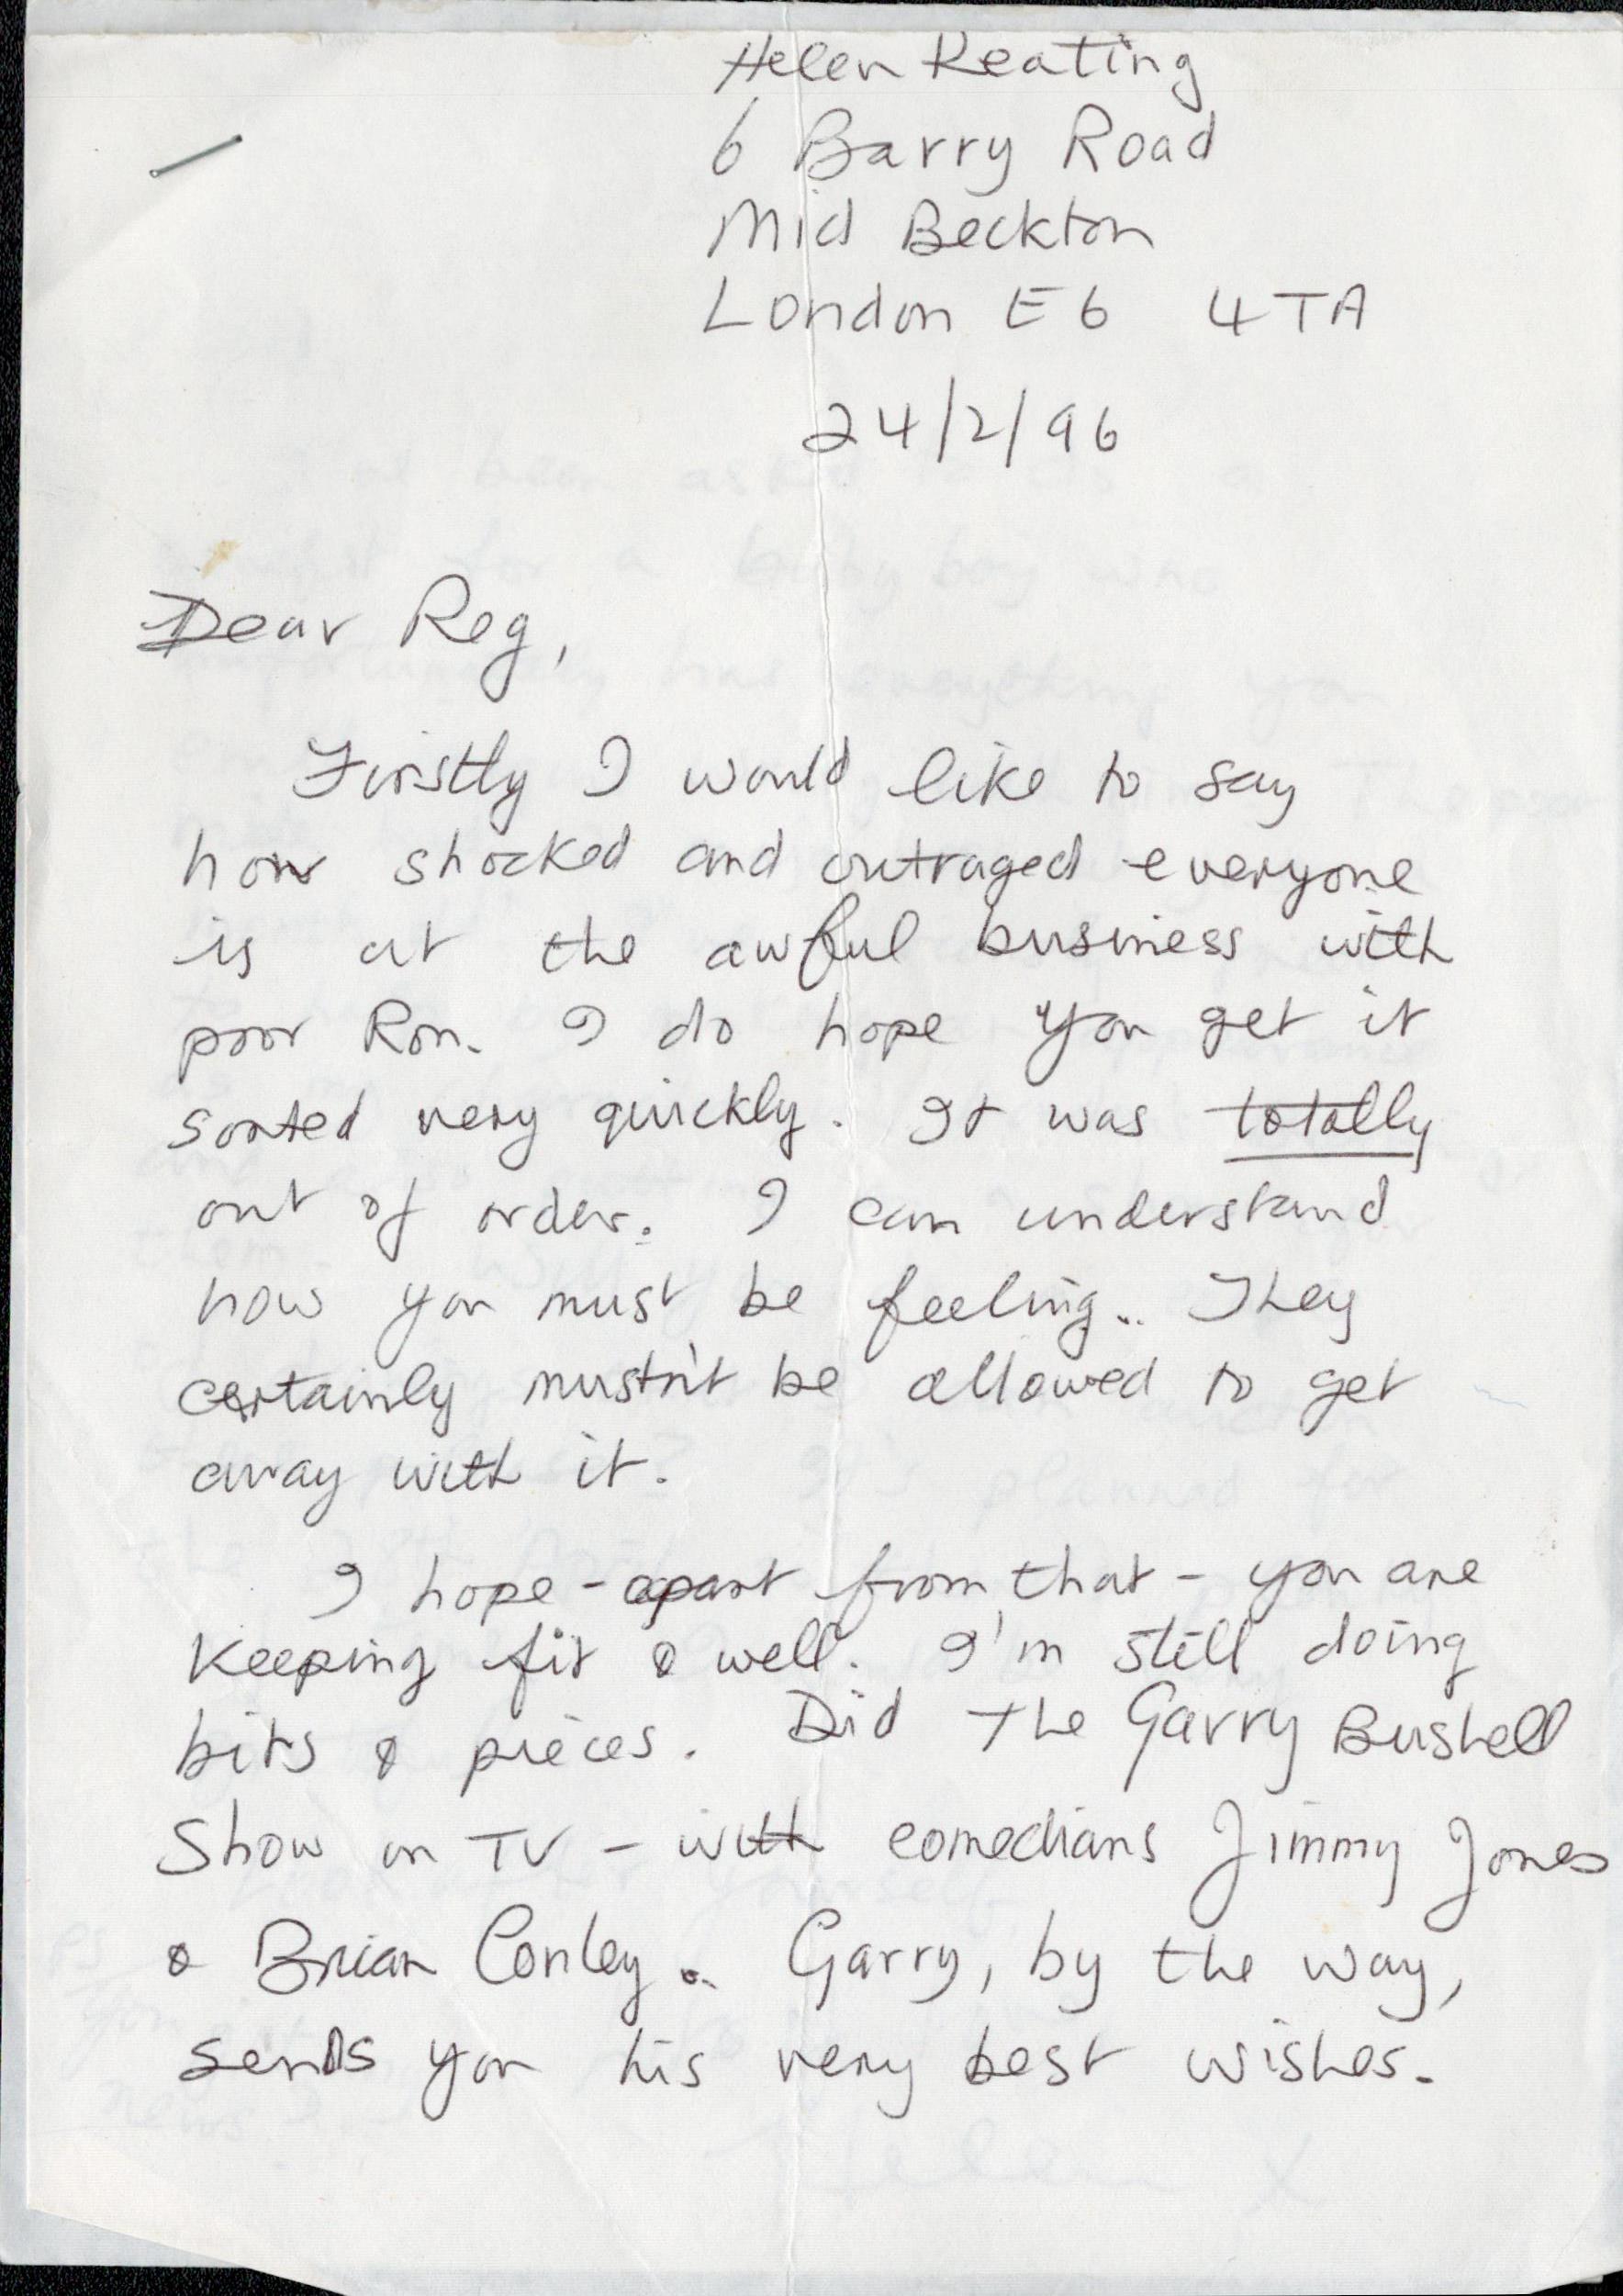 Helen Keating
6 Barry Road
Mid Beckton
London E6 4TA
24/2/96
Dear Reg,
Firstly I would like to say
how shocked and outraged everyone
is at the awful business with
poor Ron. I do hope you get it
sorted very quickly. It was totally
out of order. I can understand
how you must be feeling.. They
certainly mustn't be allowed to get
away with it.
I hope - apart from that - you are
keeping fit & well. I'm still doing
bits & pieces. Did the Garry Bushell
Show on TV - with comedians Jimmy Jones
& Brian Conley. Garry, by the way,
sends you his very best wishes.